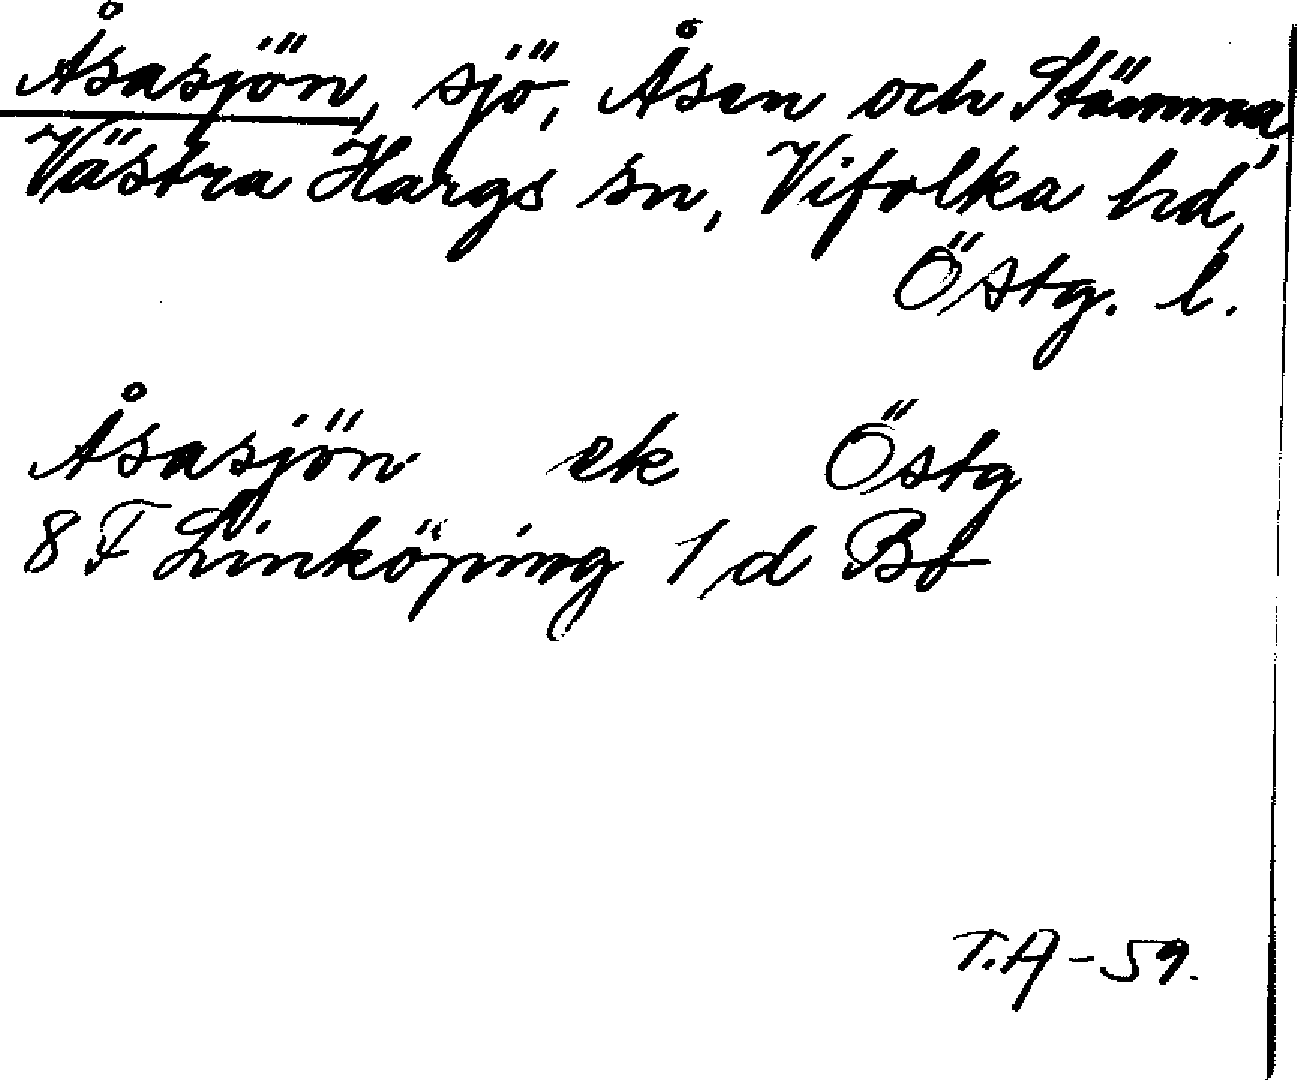 Åsasjön, sjö, Åsen och Stämma,
Västra Hargs sn, Vifolka hd,
Östg. l.
Åsasjön ek Östg
8 F Linköping 1 d Bd
T.A - 59.